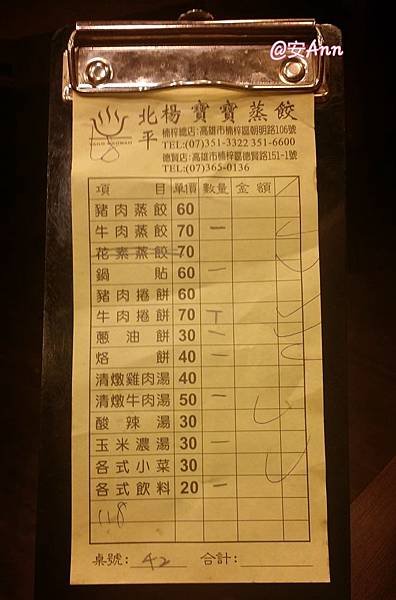 @安Ann
北平 楊寶寶蒸餃
YANG BAOBAO
楠梓總店:高雄市楠梓區朝明路106號
TEL:(07)351-3322 351-6600
德賢店:高雄市楠梓區德賢路151-1號
TEL:(07)365-0136
項目 單價 數量 金額
豬肉蒸餃 60
牛肉蒸餃 70 一
花素蒸餃 70
鍋貼 60 一
豬肉捲餅 60
牛肉捲餅 70 T
蔥油餅 30 一
烙餅 40 一
清燉雞肉湯 40
清燉牛肉湯 50 一
酸辣湯 30
玉米濃湯 30 一
各式小菜 30
各式飲料 20 一
118
桌號: 42 合計: